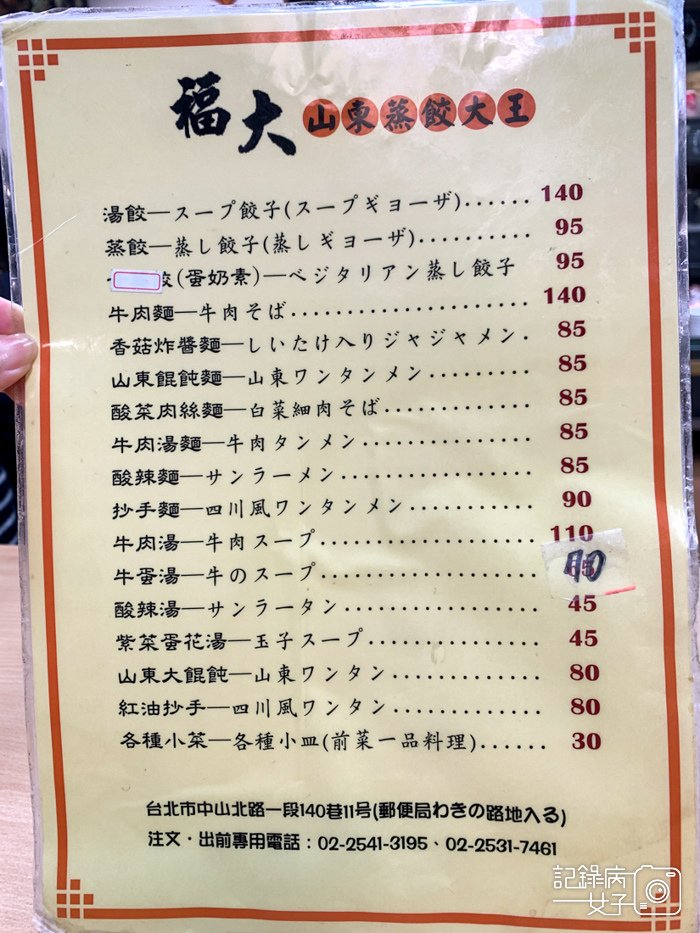 福大 山東蒸餃大王
湯餃—スープ餃子(スープギョーザ)...... 140
蒸餃—蒸し餃子(蒸しギョーザ).......... 95
(蛋奶素)—ベジタリアン蒸し餃子 95
牛肉麵—牛肉そば..................... 140
香菇炸醬麵—しいたけ入りジャジャメン. 85
山東餛飩麵—山東ワンタンメン......... 85
酸菜肉絲麵—白菜細肉そば............. 85
牛肉湯麵—牛肉タンメン............... 85
酸辣麵—サンラーメン................. 85
抄手麵—四川風ワンタンメン........... 90
牛肉湯—牛肉スープ................... 110
牛蛋湯—牛のスープ...................
酸辣湯—サンラータン................. 45
紫菜蛋花湯—玉子スープ............... 45
山東大餛飩—山東ワンタン............. 80
紅油抄手—四川風ワンタン............. 80
各種小菜—各種小皿(前菜一品料理)...... 30
台北市中山北路一段140巷11号(郵便局わきの路地入る)
注文・出前專用電話：02-2541-3195、02-2531-7461
記錄病
女子